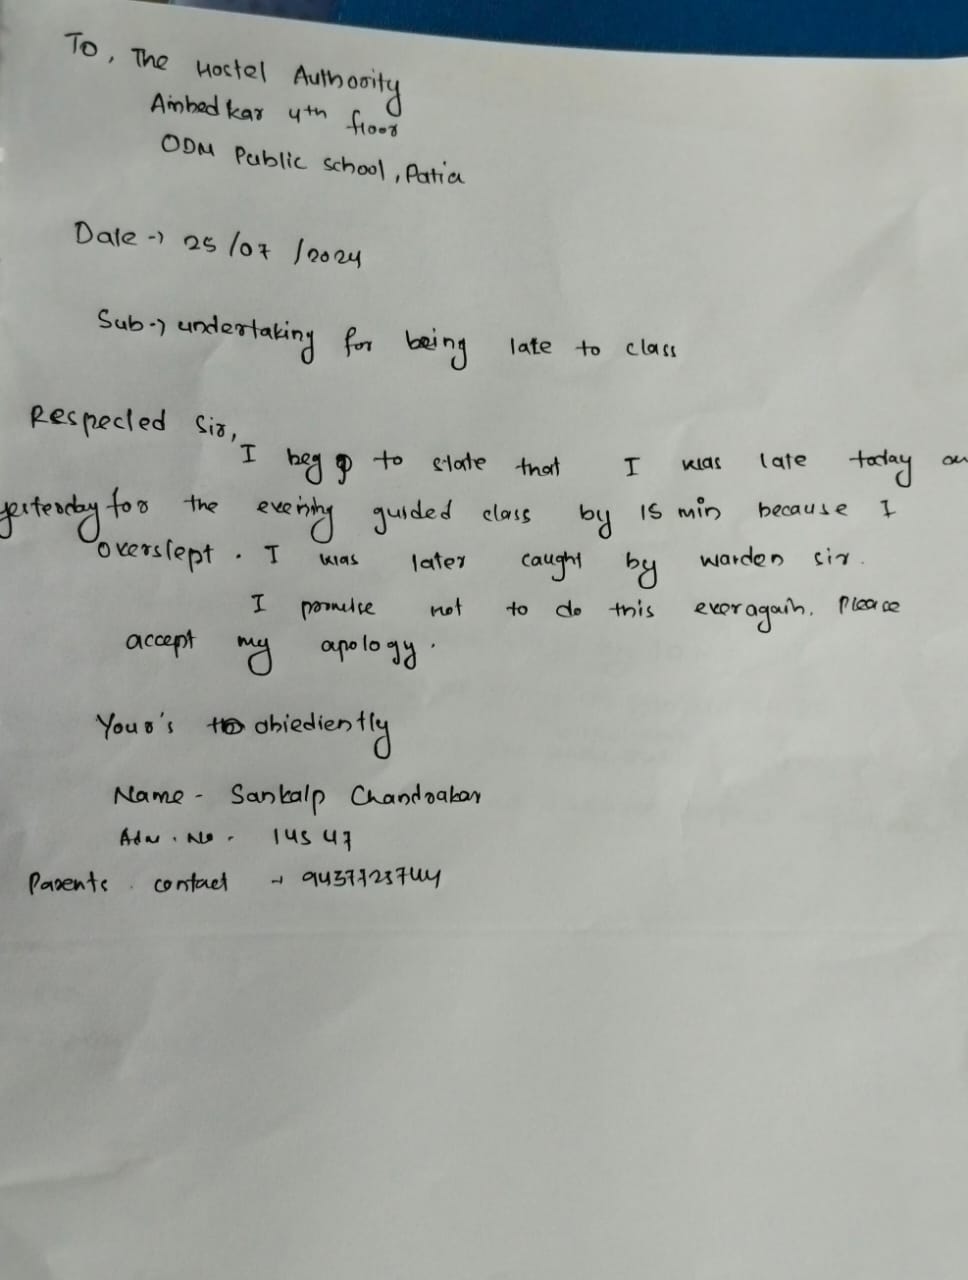 To, The Hostel Authority
Ambedkar 4th floor
ODM Public school, Patia
Date -> 25/07/2024
Sub -> undertaking for being late to class
Respected Sir,
I beg to state that I was late today an
yesterday for the evening guided class by 15 min because I
overslept. I was later caught by warden sir.
I promise not to do this ever again. Please
accept my apology.
Your's obiediently
Name - Sankalp Chandrakar
Adm. No. 14547
Parents contact ->